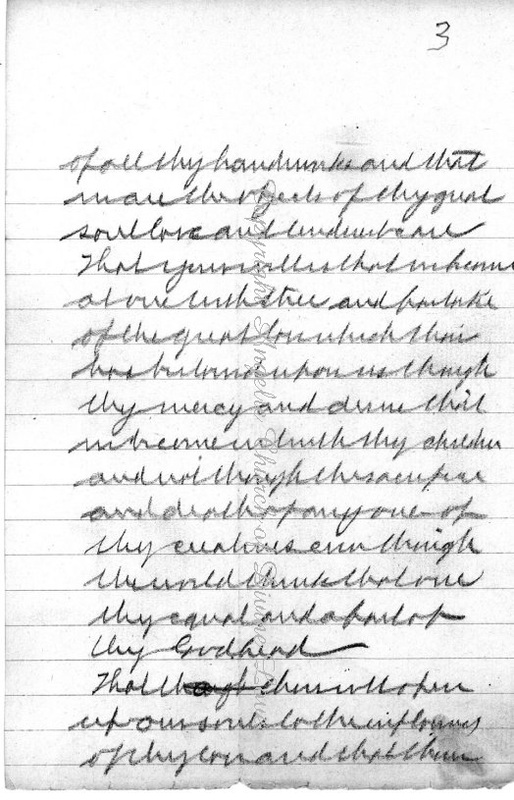 3
of all thy handiworks and that
we are the objects of thy great
soul love and tenderest care
That your will is that we become
at one with thee and partake
of the great love which thou
has bestowed upon us though
thy mercy and desire that
we become in truth thy children
and not through the sacrifice
and death of any one of
thy creatures even though
the world thinks that one
thy equal and a part of
thy Godhead
That thou wilt open
up our souls to the inflowing
of thy love and that then
Copyright Angela Church of Divine